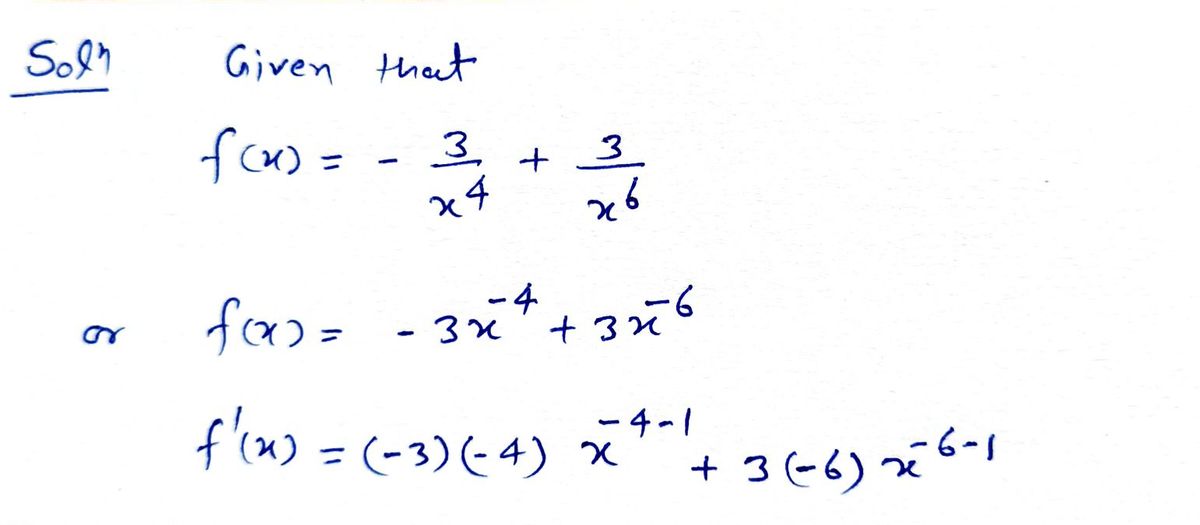 Soln Given that
f(x) = - 3/x^4 + 3/x^6
or f(x) = - 3x^-4 + 3x^-6
f'(x) = (-3)(-4) x^-4-1 + 3(-6) x^-6-1